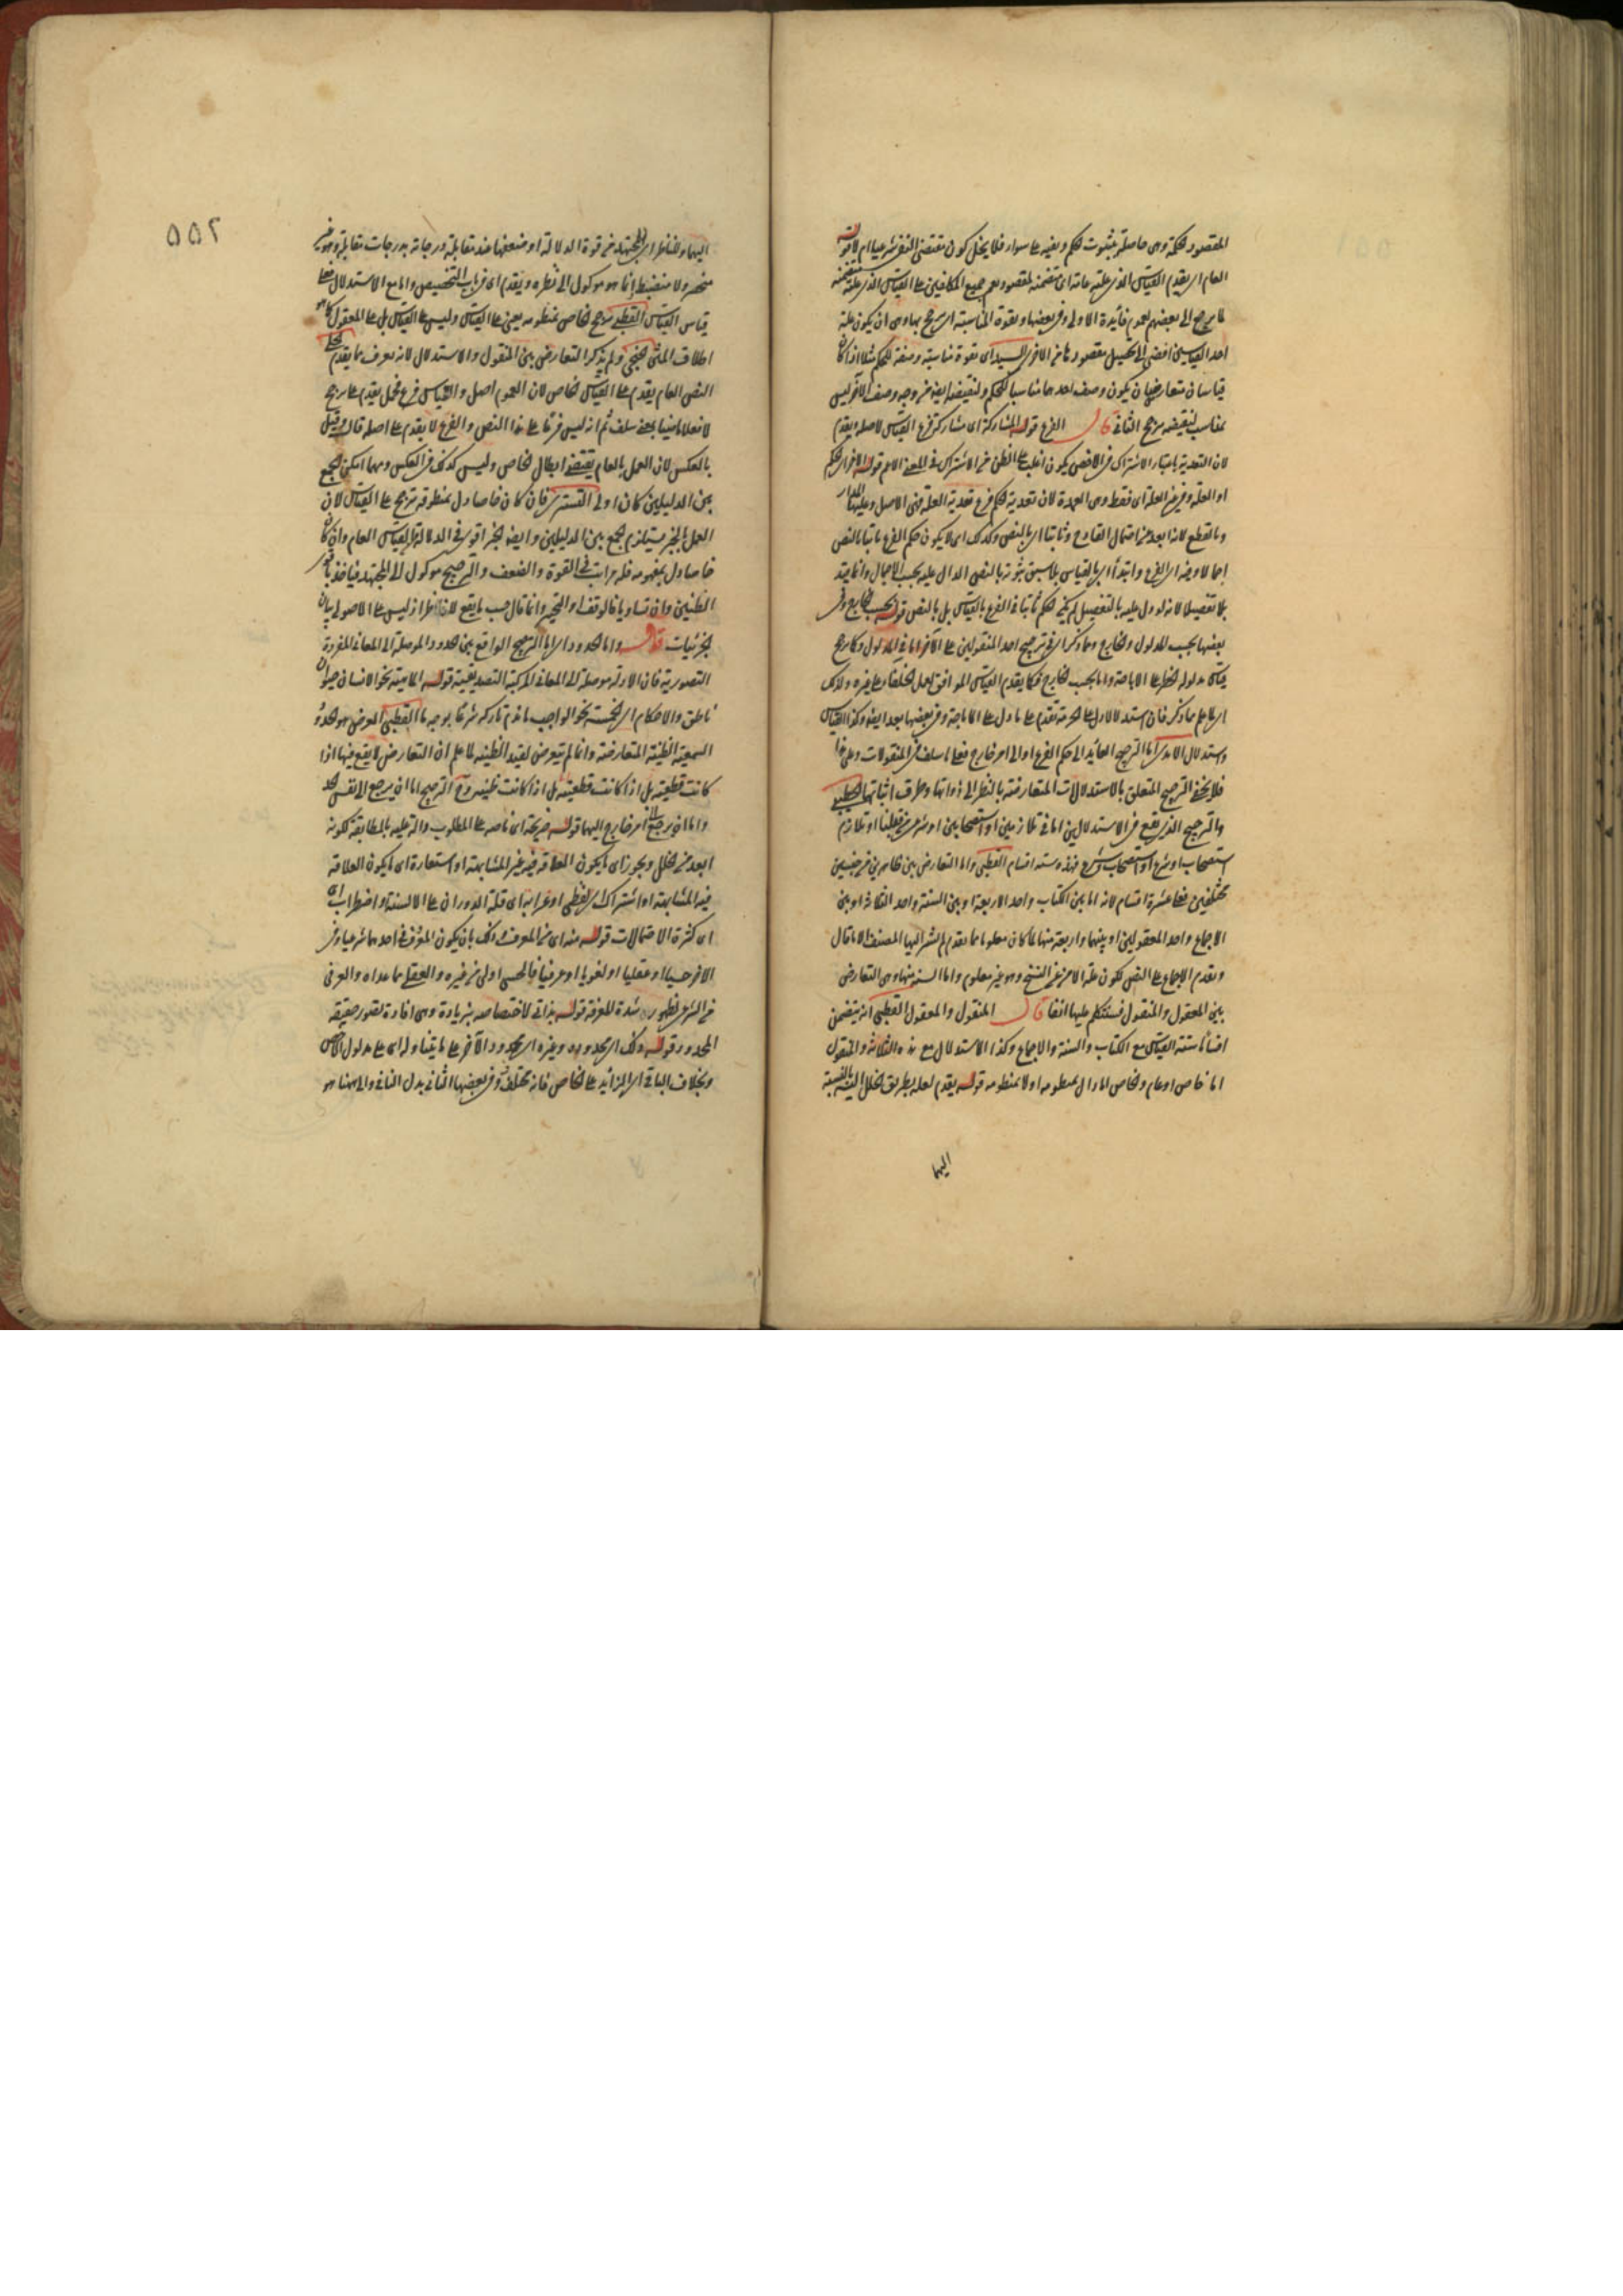 المقصود لحكمة وهى حاصلة بثبوت الحكم ونفيه على سواء فلا يخل كون مقتضى النفى شرعيا ام لا قوله
العام اى يقدم القياس الذى علته عامة اى متضمنة لمقصود يعم جميع المكلفين على القياس الذى علته متضمنة
لما يرجع الى بعضهم لعموم فائدة الاولى وفى بعضها وبقوة المناسبة اى يرجح بها وهى ان يكون علة
احد القياسين افضى الى تحصيل مقصودها من الاخرى السيد اى بقوة مناسبة وصفة للحكم مثلا اذا كان
قياسان متعارضان يكون وصف احدهما مناسبا للحكم ولنقيضه ايضا من وجه ووصف الآخر ليس
بمناسب لنقيضه يرجح الثانى قال الفرع قوله المشاركة اى مشاركة فرع القياس لاصله ويقدم
لان التعدية باعتبار الاشتراك فى الاخص يكون اغلب على الظن من الاشتراك فى المعنى الاعم قوله الاخرى الحكم
او العلة وفى عين العلة اى فقط وهى العمدة لان تعدية الحكم فرع تعدية العلة فهى الاصل وعليها المدار
وبالقطع لانه ابعد عن احتمال القادح وثابتا اى بالنص وكذلك اى لا يكون حكم الفرع ثابتا بالنص
اجمالا وفيه اى الفرع وابتداء اى بالقياس بلا سبق ثبوته بالنص الدال عليه بحسب الاجمال وانما قيد
بلا تفصيلا لانه لو دل عليه بالتفصيل لم يكن الحكم ثابتا فى الفرع بالقياس بل بالنص قوله بحسب الخارج وفى
بعضها بحسب المدلول والخارج ومما ذكر اى فى ترجيح احد المنقولين على الآخر اما فى المدلول وكما يرجح
قياس مدلوله الحظر على الاباحة واما بحسب الخارج فكما يقدم القياس الموافق لعمل الخلفاء على غيره وذلك
اى لا علم مما ذكر فان استدلالا دل على الحرمة تقدم على ما دل على الاباحة وفى بعضها بعد ايضا وكذا القياس
واستدلال الآمدى اما الترجيح العائد الى حكم الفرع او الى امر خارج فعلى ما سلف فى المنقولات وعلى هذا
فلا يخفى الترجيح المتعلق بالاستدلالات المتعارضة بالنظر الى ذواتها وطرق اثباتها الخطيبى
والترجيح الذى يقع فى الاستدلالين اما فى تلازمين او استصحابين او شرعى من قبلنا او تلازم
استصحاب او شرع او استصحاب وشرع فهذه ستة اقسام القطبى واما التعارض بين ظاهرين من جنسين
مختلفين فعلى عشرة اقسام لانه اما بين الكتاب واحد الاربعة او بين السنة واحد الثلاثة او بين
الاجماع واحد المعقولين او بينهما واربعة منها لما كان معلوما مما تقدم لم يشر اليها المصنف الا ما قال
ويقدم الاجماع على النص لكون علة الامن عن النسخ وهو غير معلوم واما الستة منها وهى التعارض
بين المعقول والمنقول فستتكلم عليها انفا قال المنقول والمعقول القطبى انه يتضمن
اقساما ستة القياس مع الكتاب والسنة والاجماع وكذا الاستدلال مع هذه الثلاثة والمنقول
اما خاص او عام والخاص اما دال بمنطوقه او لا بمنطوقه قوله يقدم لعله بطريق الخلل اليه بالنسبة
اليها
٥٥٢
اليهما وللناظر اى المجتهد من قوة الدلالة او ضعفها عند مقابلة درجاته بدرجات مقابلة وهو غير
منحصر ولا منضبط انما هو موكول الى نظره ويقدم اى من باب التخصيص واما مع الاستدلال فعلى
قياس القياس القطبى يرجح الخاص بمنطوقه يعنى على القياس وليس على القياس بل على المعقول كما هو
اطلاق المتن الخنجى ولم يذكر التعارض بين المنقول والاستدلال لانه يعرف مما يقدم الحلى
النص العام يقدم على القياس الخاص لان العموم اصل والقياس فرع فحمل يقدم على يرجح
لا فعلا ماضيا بمعنى سلف ثم انه ليس فرعا على هذا النص والفرع لا يقدم على اصله قال وقيل
بالعكس لان العمل بالعام يقتضى ابطال الخاص وليس كذلك فى العكس ومهما امكن الجمع
بين الدليلين كان اولى التسترى فان كان خاصا دل بمنطوقه ترجح على القياس لان
العمل بالخبر يستلزم الجمع بين الدليلين وايضا الخبر اقوى فى الدلالة من القياس العام وان كان
خاصا دل بمفهومه فله مراتب فى القوة والضعف والترجيح موكول الى المجتهد فياخذ باقوى
الظنين وان تساويا فالوقف او التخيير وانما قال حسب ما يقع للناظر اذ ليس على الاصولى بيان
الجزئيات قوله واما الحدود اى اما الترجيح الواقع بين الحدود الموصلة الى المعانى المفردة
التصورية فان الادلة موصلة الى المعانى المركبة التصديقية قوله الماهية نحو الانسان حيوان
ناطق والاحكام اى الخمسة نحو الواجب ما ذم تاركه شرعا بوجه ما القطبى الغرض هو الحدود
السمعية الظنية المتعارضة وانما لم يتعرض لقيد الظنية لما علم ان التعارض لا يقع فيها اذا
كانت قطعية بل اذا كانت ظنية وح الترجيح اما ان يرجع الى نفس الحد
واما ان يرجع الى امر خارج اليهما قوله صريحة اى ناصة على المطلوب دالة عليه بالمطابقة لكونه
ابعد من الخلل وتجوز اى يكون العلاقة فيه غير المشابهة او استعارة اى يكون العلاقة
فيه المشابهة او اشتراك اى لفظى او غرابة اى قلة الدوران على الالسنة او اضطراب اى
اى كثرة الاحتمالات قوله منه اى من المعرف وذلك بان يكون المعرف فى احدهما شرعيا وفى
الاخر حسيا او عقليا او لغويا او عرفيا فالحسى اولى من غيره والعقلى مما عداه والعرفى
من الشرعى لظهوره وشدة المعرفة قوله بذاتى لاختصاصه بزيادة وهى افادة تصور حقيقة
المحدود قوله وذلك اى الحدود وغيره اى محدود الآخر على ما يتناوله اى على مدلول الاخص
وبخلاف الباقى اى الزائد على الخاص فانه مختلف وفى بعضها الثانى بدل الباقى والى هنا هو